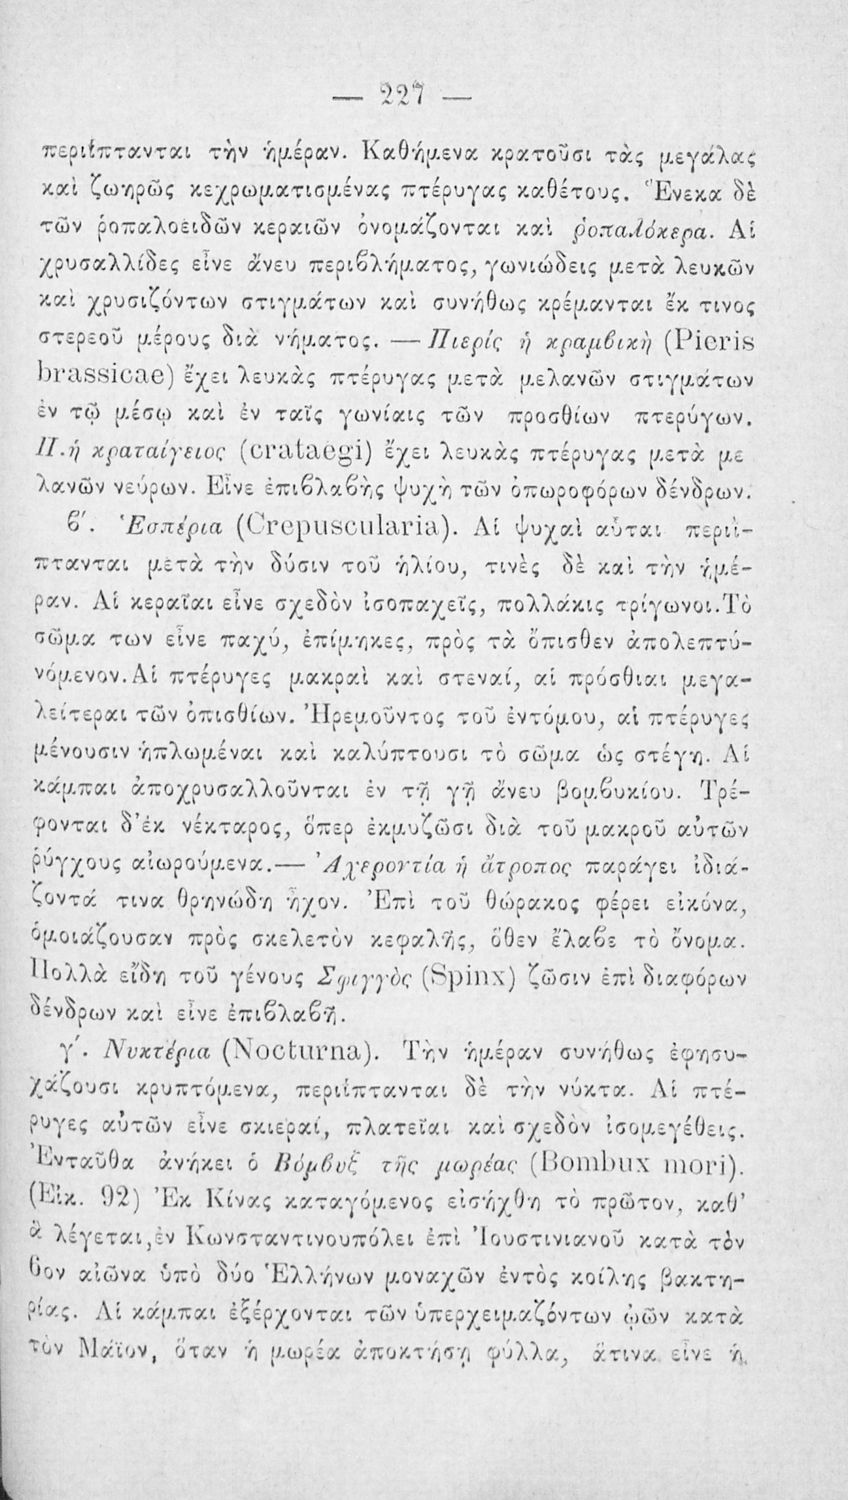 — 227 —
περιΐπτανται τὴν ἡμέραν. Καθήμενα κρατοῦσι τὰς μεγάλας
καὶ ζωηρῶς κεχρωματισμένας πτέρυγας καθέτους. Ἕνεκα δὲ
τῶν ῥοπαλοειδῶν κεραιῶν ὀνομάζονται καὶ ῥοπαλόκερα. Αἱ
χρυσαλλίδες εἶνε ἄνευ περιβλήματος, γωνιώδεις μετὰ λευκῶν
καὶ χρυσιζόντων στιγμάτων καὶ συνήθως κρέμανται ἔκ τινος
στερεοῦ μέρους διὰ νήματος. — Πιερίς ἡ κραμβικὴ (Pieris
brassicae) ἔχει λευκὰς πτέρυγας μετὰ μελανῶν στιγμάτων
ἐν τῷ μέσῳ καὶ ἐν ταῖς γωνίαις τῶν προσθίων πτερύγων.
Π. ἡ κραταίγειος (crataegi) ἔχει λευκὰς πτέρυγας μετὰ με
λανῶν νεύρων. Εἶνε ἐπιβλαβὴς ψυχὴ τῶν ὀπωροφόρων δένδρων.
β′. Ἑσπέρια (Crepuscularia). Αἱ ψυχαὶ αὗται περιΐ-
πτανται μετὰ τὴν δύσιν τοῦ ἡλίου, τινὲς δὲ καὶ τὴν ἡμέ-
ραν. Αἱ κεραῖαι εἶνε σχεδὸν ἰσοπαχεῖς, πολλάκις τρίγωνοι. Τὸ
σῶμα των εἶνε παχύ, ἐπίμηκες, πρὸς τὰ ὄπισθεν ἀπολεπτύ-
νόμενον. Αἱ πτέρυγες μακραὶ καὶ στεναί, αἱ πρόσθιαι μεγα-
λείτεραι τῶν ὀπισθίων. Ἠρεμοῦντος τοῦ ἐντόμου, αἱ πτέρυγες
μένουσιν ἡπλωμέναι καὶ καλύπτουσι τὸ σῶμα ὡς στέγη. Αἱ
κάμπαι ἀποχρυσαλλοῦνται ἐν τῇ γῇ ἄνευ βομβυκίου. Τρέ-
φονται δ' ἐκ νέκταρος, ὅπερ ἐκμυζῶσι διὰ τοῦ μακροῦ αὐτῶν
ῥύγχους αἰωρούμενα. — Ἀχεροντία ἡ ἄτροπος παράγει ἰδιά-
ζοντά τινα θρηνώδη ἦχον. Ἐπὶ τοῦ θώρακος φέρει εἰκόνα,
ὁμοιάζουσαν πρὸς σκελετὸν κεφαλῆς, ὅθεν ἔλαβε τὸ ὄνομα.
Πολλὰ εἴδη τοῦ γένους Σφιγγὸς (Spinx) ζῶσιν ἐπὶ διαφόρων
δένδρων καὶ εἶνε ἐπιβλαβῆ.
γ′. Νυκτέρια (Nocturna). Τὴν ἡμέραν συνήθως ἐφησυ-
χάζουσι κρυπτόμενα, περιΐπτανται δὲ τὴν νύκτα. Αἱ πτέ-
ρυγες αὐτῶν εἶνε σκιεραί, πλατεῖαι καὶ σχεδὸν ἰσομεγέθεις.
Ἐνταῦθα ἀνήκει ὁ Βόμβυξ τῆς μωρέας (Bombux mori).
(Εἰκ. 92) Ἐκ Κίνας καταγόμενος εἰσήχθη τὸ πρῶτον, καθ'
ἃ λέγεται, ἐν Κωνσταντινουπόλει ἐπὶ Ἰουστινιανοῦ κατὰ τὸν
6ον αἰῶνα ὑπὸ δύο Ἑλλήνων μοναχῶν ἐντὸς κοίλης βακτη-
ρίας. Αἱ κάμπαι ἐξέρχονται τῶν ὑπερχειμαζόντων ᾠῶν κατὰ
τὸν Μάϊον, ὅταν ἡ μωρέα ἀποκτήσῃ φύλλα, ἅτινα εἶνε ἡ